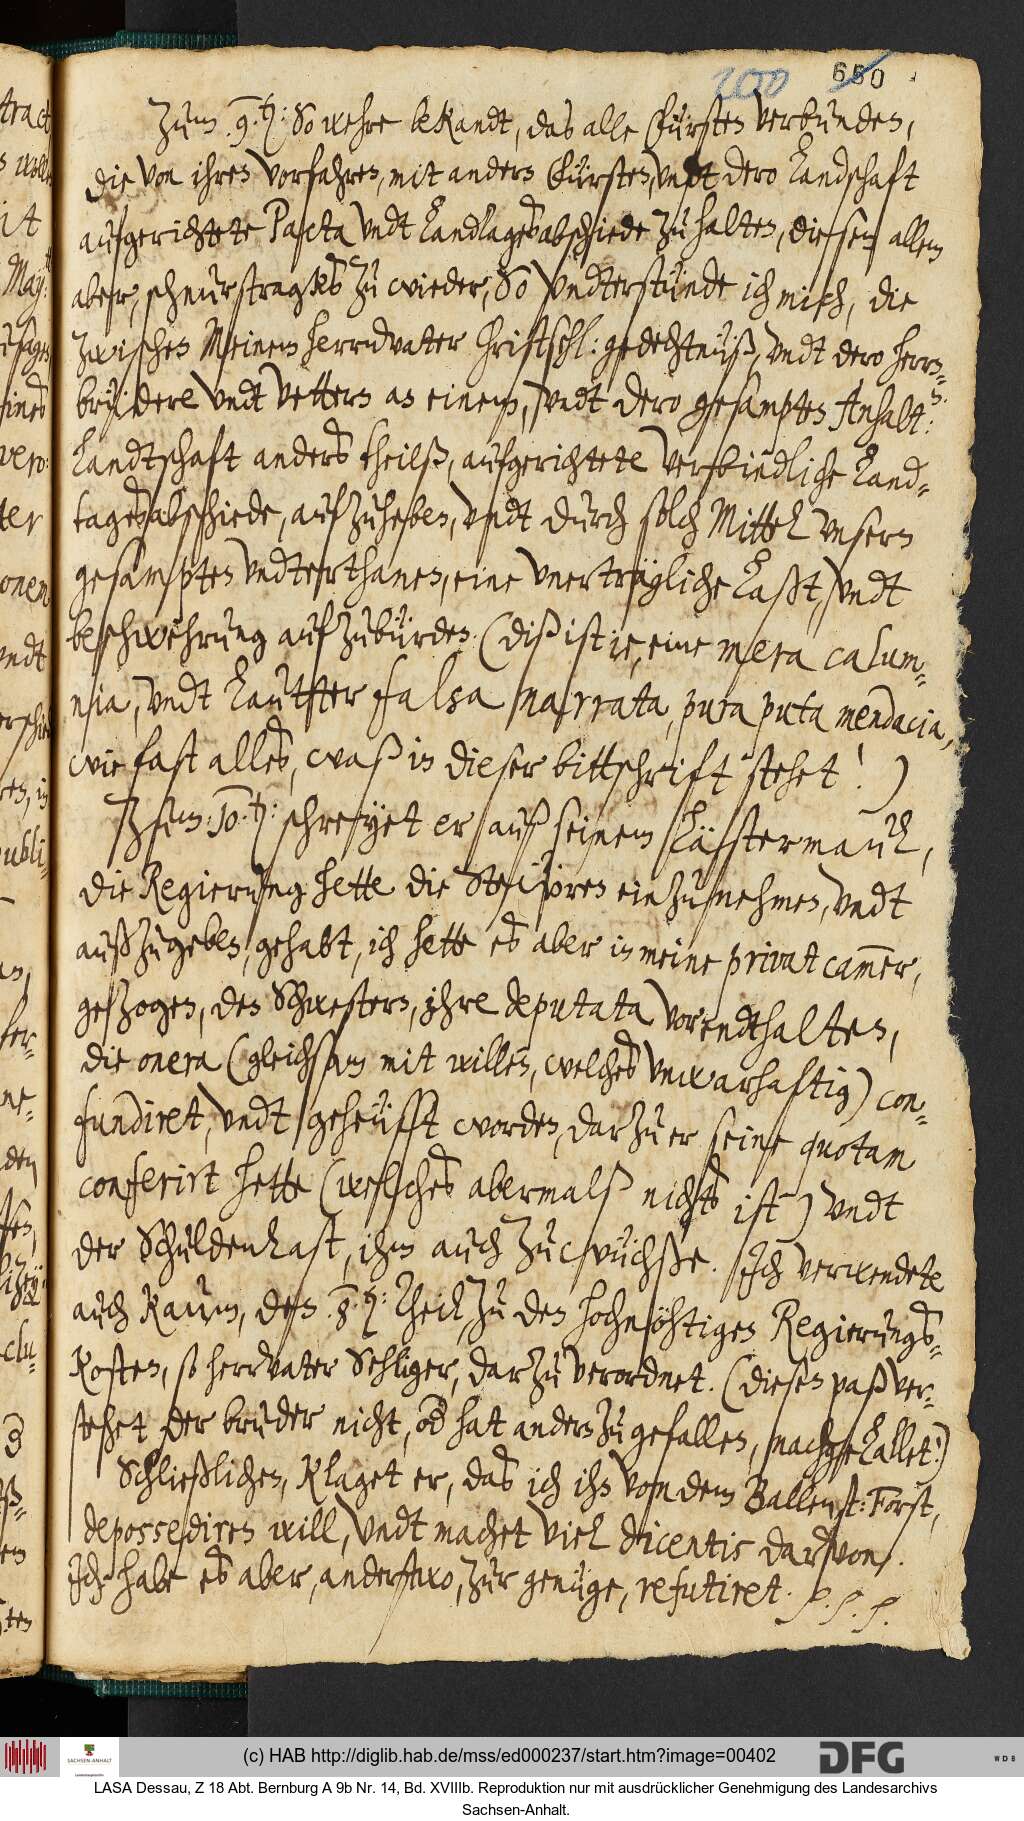 200 660
Zum .9.ten: So wehre bekandt, das alle Fürsten verbunden,
die von ihren Vorfahren, mit andern Fürsten, undt dero Landschaft
aufgerichtete Pacta undt Landtagesabschiede zu halten, diesem allem
aber, schnurstragks zu wieder, So undterstünde ich mich, die
zwischen Meinem herrnvater Christsehl: gedechtnüß, undt dero herrn
brüdere undt Vettern an einem, undt dero gesampten Anhalt:
Landtschaft anders theilß, aufgerichtete verbindliche Land-
tagesabschiede, aufzuheben, undt durch solch Mittel unsern
gesampten undterthanen, eine unerträgliche Laßt, undt
beschwehrung aufzubürden. (diß ist ie, eine mera calum-
nia, undt lautter falsa narrata, pura puta mendacia,
wie fast alles, waß in dieser bittschrift stehet! )
Zum .10.ten: schreyet er auß seinem Lästermaul,
die Regierung hette die Steüren einzunehmen, undt
außzugeben, gehabt, ich hette es aber in meine privat camer,
gezogen, den Schwestern, ihre deputata vorendthalten,
die onera (gleichsam mit willen, welches unwarhaftig) con-
fundiret, undt geheüfft worden, darzu er seine quotam
conferirt hette (welches abermalß nichts ist) undt
der Schuldenlast, ihm auch zuwüchße. Ich verwendete
auch kaum, den .8.ten: theil, zu den hochnöhtigen Regierungs-
kosten, so herrvater Sehliger, darzu verordnet. (diesen paß ver-
stehet der bruder nicht, od hat anderen zu gefallen, nachgelallet!)
Schließlichen, klaget er, das ich ihn von dem Ballenst: Forst,
depossediren will, undt machet viel dicentis darvon.
Ich habe es aber, anderßwo, zur genüge, refutiret. p. p. p.
(c) HAB http://diglib.hab.de/mss/ed000237/start.htm?image=00402
SACHSEN-ANHALT
DFG
WDB
LASA Dessau, Z 18 Abt. Bernburg A 9b Nr. 14, Bd. XVIIIb. Reproduktion nur mit ausdrücklicher Genehmigung des Landesarchivs
Sachsen-Anhalt.